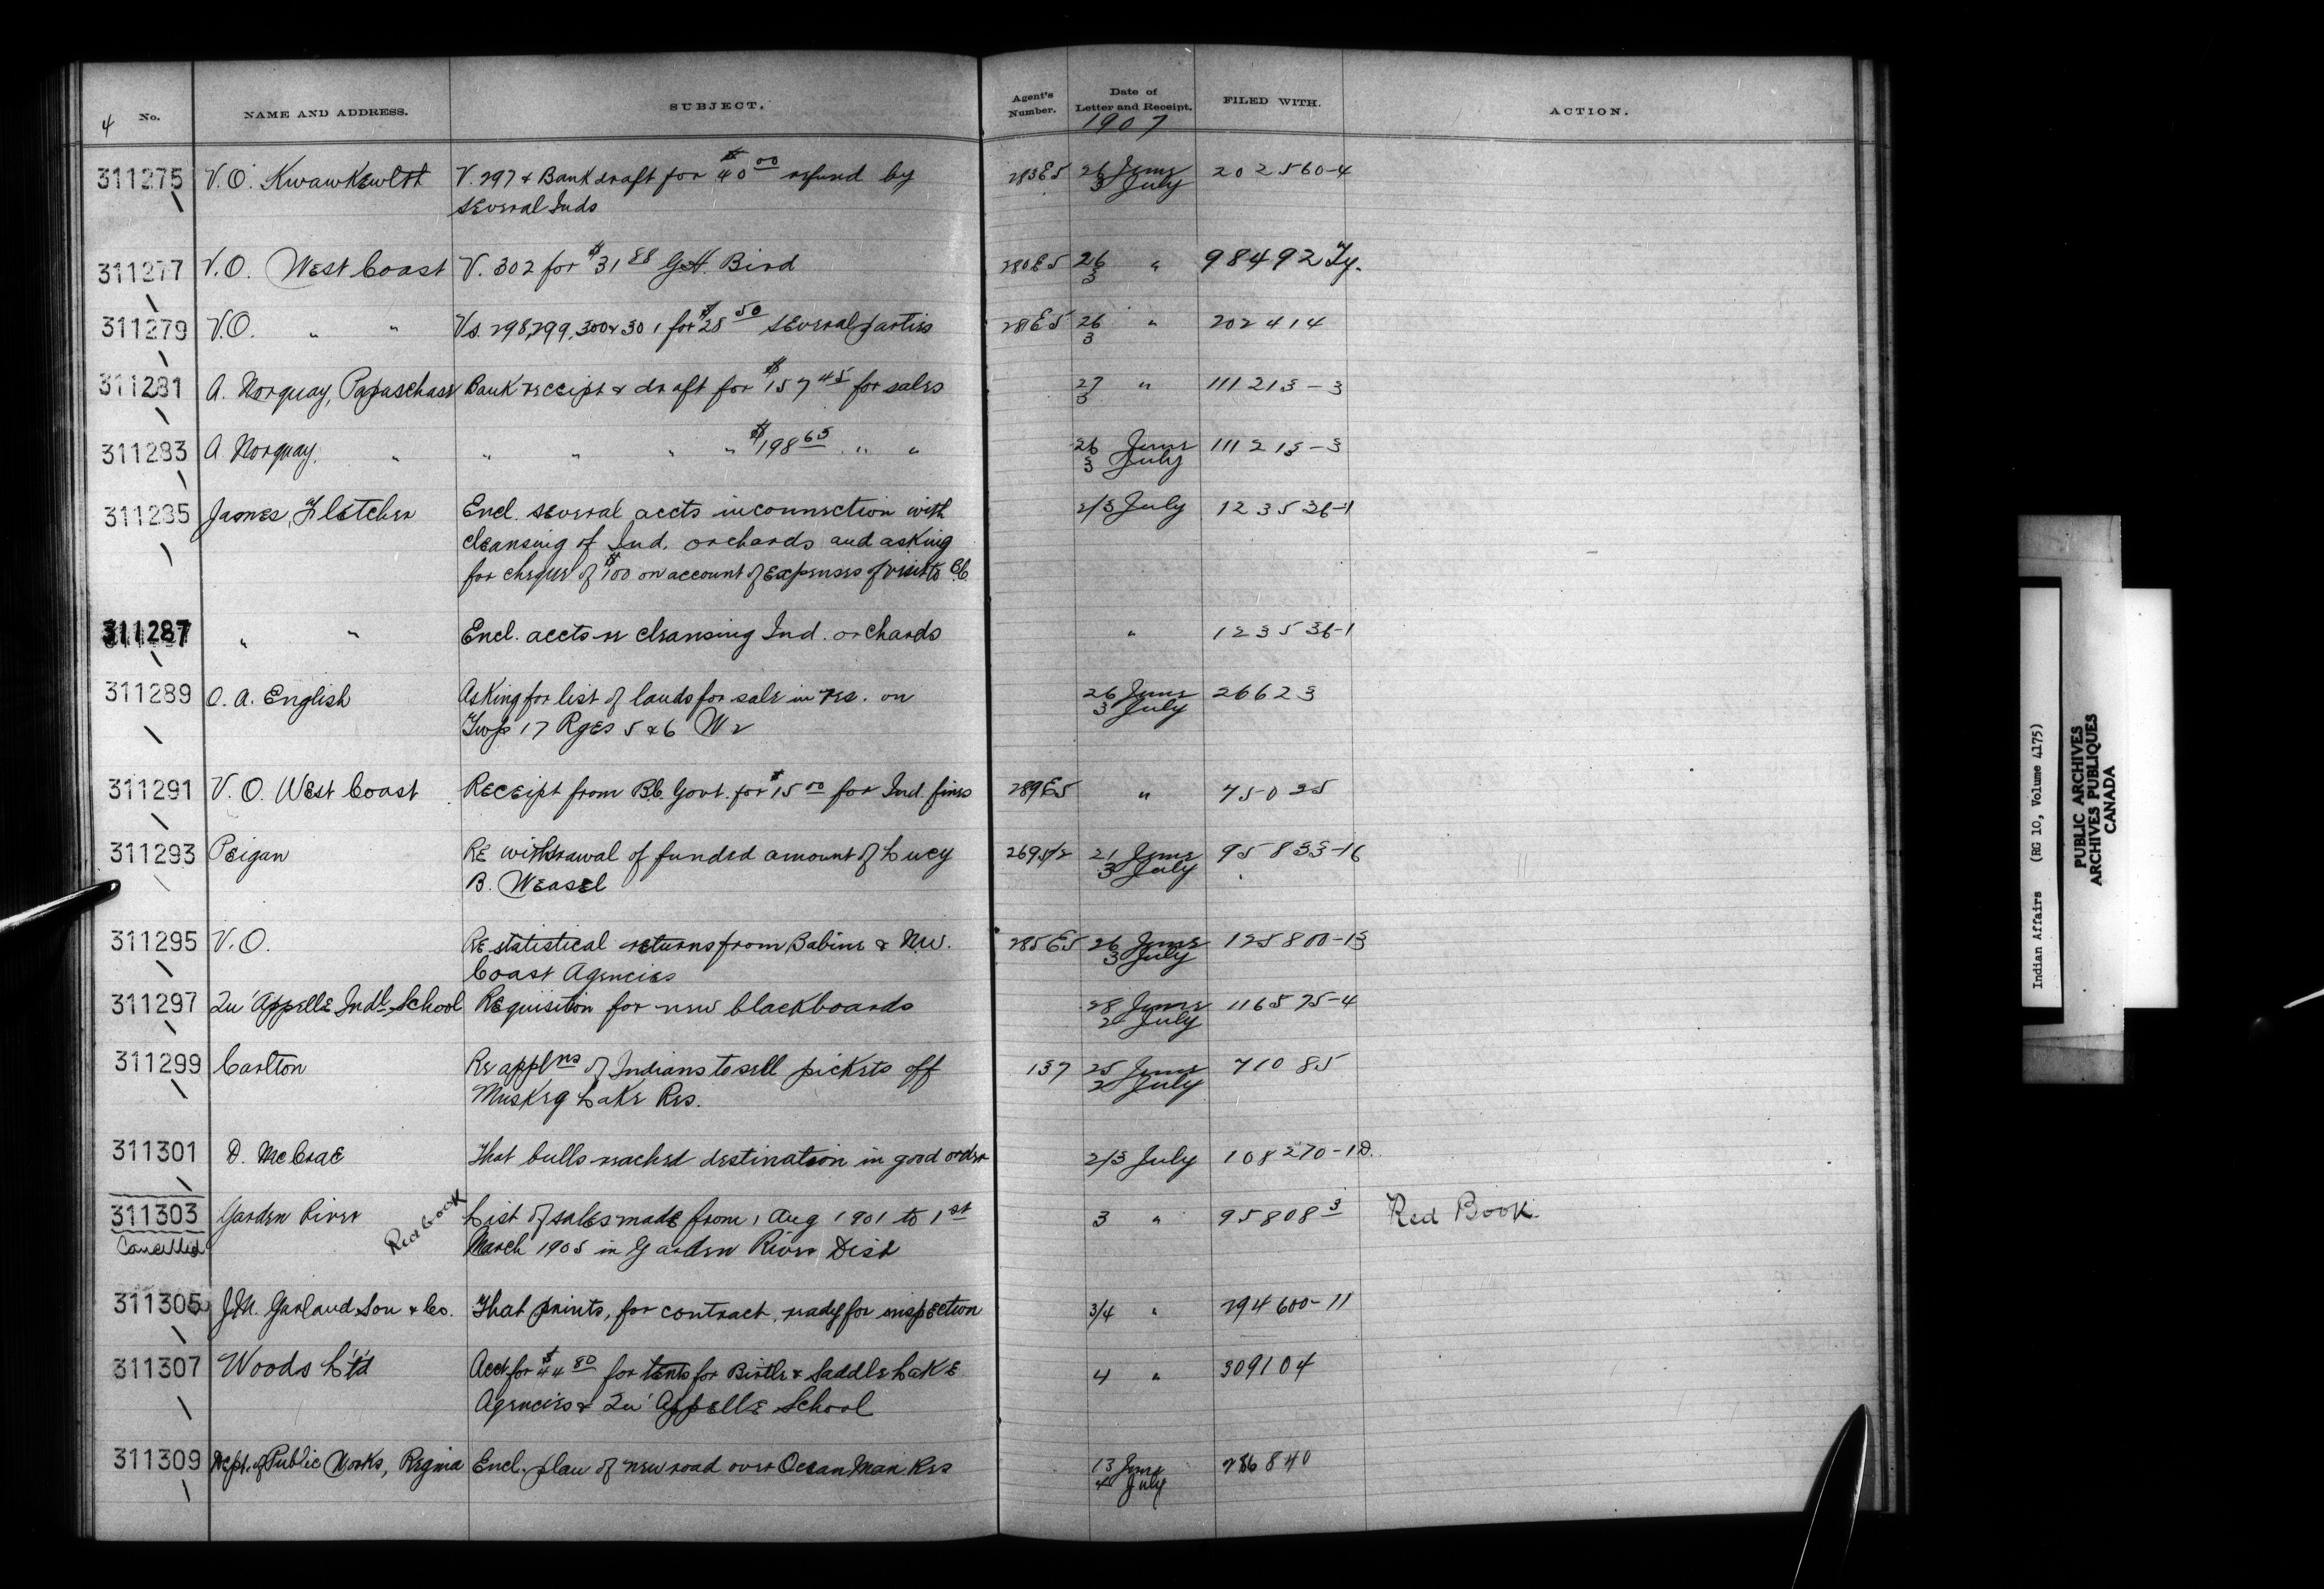 4 No. NAME AND ADDRESS. SUBJECT. Agent's Number. Date of Letter and Receipt. FILED WITH. ACTION.
1907
311275 V.O. Kwawkewlth V. 297 & Bank draft for $40 00 refund by 283E5 26 June 202560-4
several Inds 3 July
311277 V.O. West Coast V. 302 for $31 88 G.H. Bird 280E5 26 " 98492 Ty.
3
311279 V.O. " " Vs. 298,299,300 & 301 for $28 50 several parties 281E5 26 " 202414
3
311281 A. Norquay, Papaschase Bank receipt & draft for $157 45 for sales 27 " 111213-3
3
311283 A Norquay. " " " " " $198 65 " " 26 June 111213-3
3 July
311285 James Fletcher Encl. several accts inconnection with 2/3 July 123536-1
cleansing of Ind. orchards and asking
for cheque of $100 on account of expenses of visit to B.C.
311287 " " Encl. accts re cleansing Ind. orchards " 123536-1
311289 O. A. English Asking for list of lands for sale in res. on 26 June 26623
Twp 17 Rges 5 & 6 W2 3 July
311291 V. O. West Coast Receipt from B.C. Govt. for $15 00 for Ind. fines 289E5 " 75025
311293 Peigan Re withdrawal of funded amount of Lucy 269 5/2 21 June 95833-16
B. Weasel 3 July
311295 V.O. Re statistical returns from Babine & N.W. 285E5 26 June 125800-13
Coast Agencies 3 July
311297 Qu'Appelle Indl. School Requisition for new blackboards 28 June 116575-4
2 July
311299 Carlton Re applns of Indians to sell pickets off 137 25 June 71085
Muskeg Lake Res. 2 July
311301 D. McCrae That bulls reached destination in good order 2/3 July 108270-1D.
311303 Garden River Red book List of sales made from 1 Aug 1901 to 1st 3 " 95808 3 Red Book
Cancelled March 1905 in Garden River Dist
311305 J.M. Garland Son & Co. That prints, for contract, ready for inspection 3/4 " 294600-11
311307 Woods L't'd Acct for $44 80 for tents for Birtle & Saddle Lake 4 " 309104
Agencies & Qu'Appelle School
311309 Dept. of Public Works, Regina Encl. plan of new road over Ocean Man Res 13 June 286840
4 July
Indian Affairs (RG 10, Volume 4175)
PUBLIC ARCHIVES
ARCHIVES PUBLIQUES
CANADA